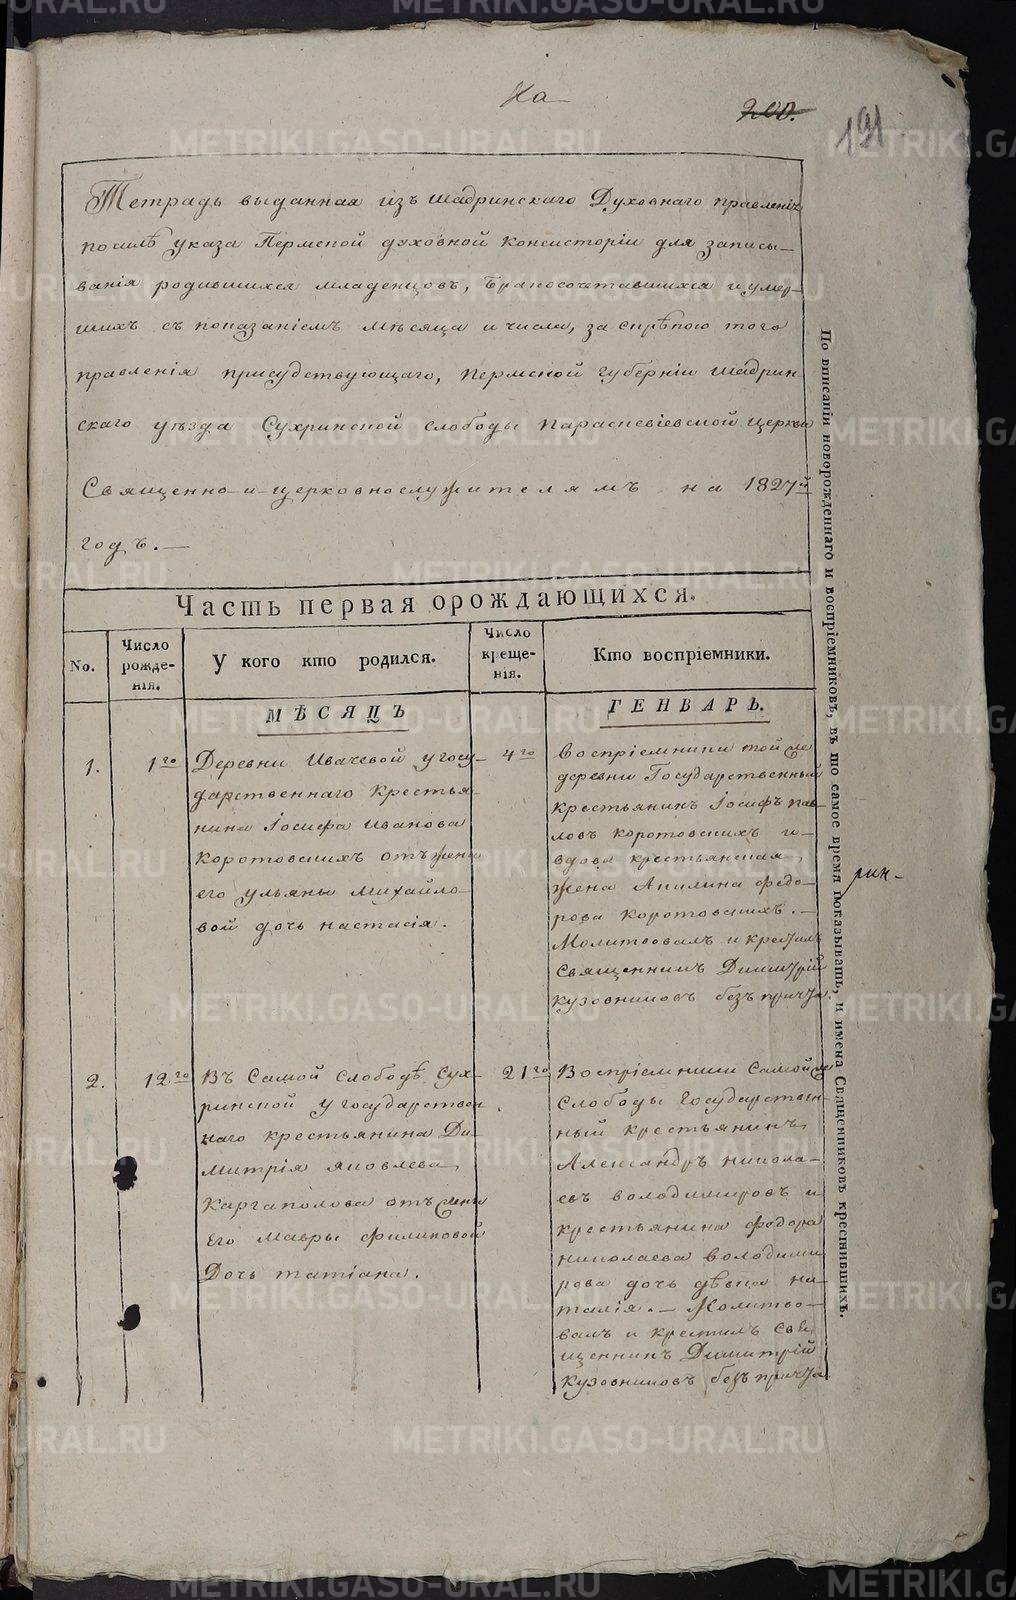 На
200.
191
Тетрадь выданная изъ Шадринскаго Духовнаго правленія
посилѣ указа Пермской духовной Консисторіи для записы—
ванія родившихся младенцовъ, бракосочетавшихся и умер—
шихъ съ показаніемъ мѣсяца и числа, за скрѣпою того
правленія присудствующаго, Пермской губерніи Шадрин—
скаго уѣзда Сухринской слободы Параскевіевской церкви
Священно-и-церковнослужителямъ на 1827й
годъ.—
Часть первая орождающихся.
No.
Число рожде-нія.
У кого кто родился.
Число креще-нія.
Кто воспріемники.
МѢСЯЦЪ
ГЕНВАРЬ.
1.
1го
Деревни Ивачевой у госу—
дарственнаго крестья—
нина Іосифа Иванова
Коротовскихъ отъ жены
его ульяны Михайло—
вой дочь настасія.
4го
Воспріемники той же
деревни Государственный
крестьянинъ Іосифъ пав—
ловъ Коротовскихъ и—
вдова крестьянская
жена Акилина федо—
рова Коротовскихъ.—
Молитвовалъ и крестилъ
священникъ Димитрій
Кузовниковъ безъ причта.
2.
12го
Въ Самой Слободѣ Сух—
ринской у государствен
наго крестьянина Ди
митрія яковлева
Каргаполова отъ жены
Его мавры филиповой
Дочь татіана.
21го
Воспріемники Самой же
Слободы государствен—
ный крестьянинъ
Александръ никола—
евъ володимировъ и
крестьянина федора
николаева володими
рова дочь дѣвка на—
талія.— Молитво—
валъ и крестилъ свя
щенникъ Димитрій
Кузовниковъ безъ причта
По вписаніи новорожденнаго и воспріемниковъ, въ то самое время показывать, и имена Священниковъ крестившихъ.
рин—